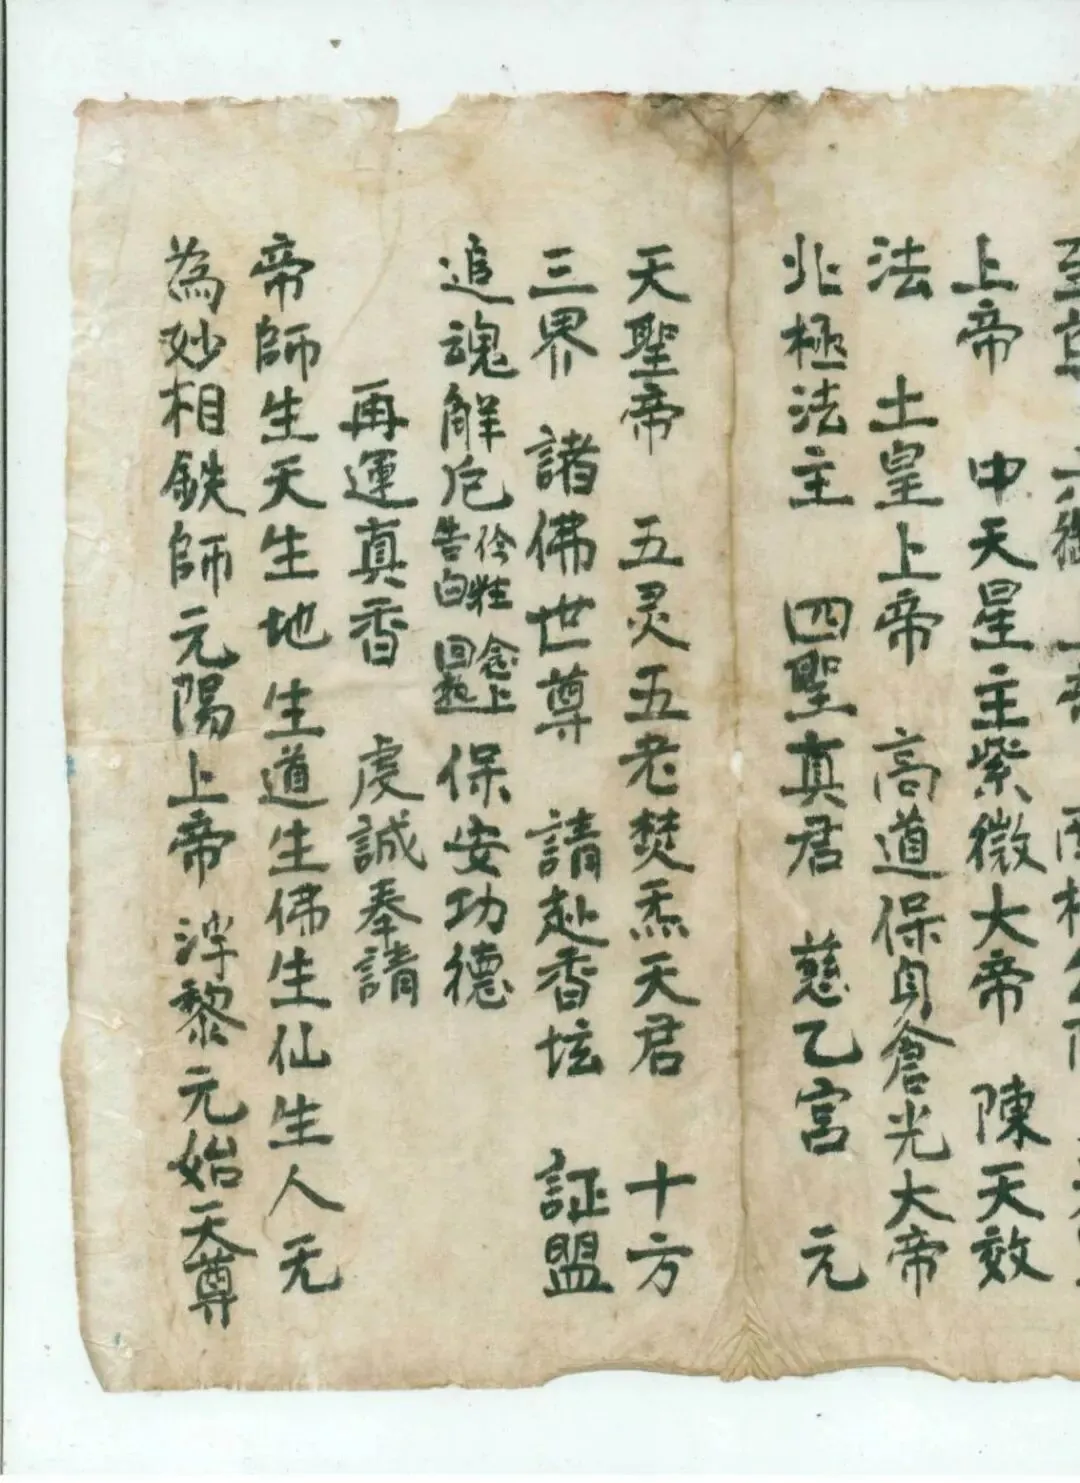 至
上帝 中天星主紫微大帝 陳天效
法 土皇上帝 高道保身倉光大帝
北極法主 四聖真君 慈乙宮 元
天聖帝 五灵五老焚炁天君 十方
三界 諸佛世尊 請赴香坛 証盟
追魂解厄 伶牲 告白 念上 回起 保安功德
再運真香 虔誠奉請
帝師生天生地生道生佛生仙生人无
為妙相鉄師元陽上帝 浮黎元始天尊